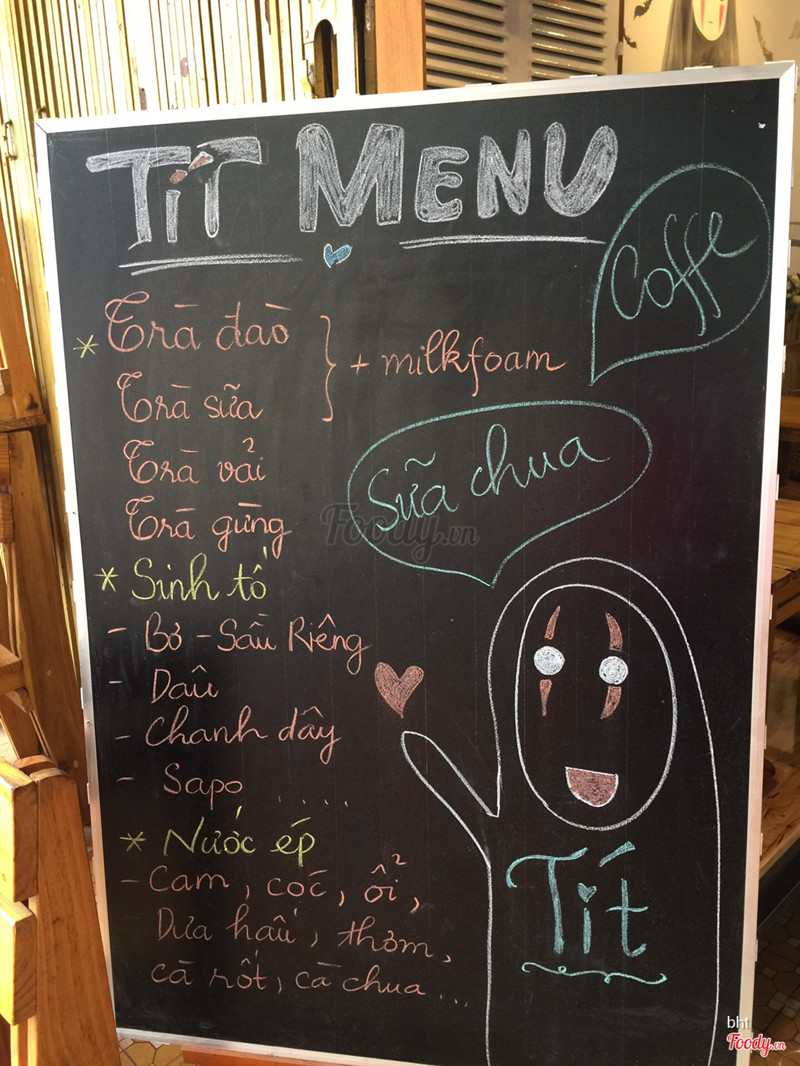 TíT MENU
Coffe
* Trà đào
+ milkfoam
Trà sữa
Sữa chua
Trà vải
Trà gừng
Foody.vn
* Sinh tố
- Bơ - Sầu Riêng
- Dâu
- Chanh dây
- Sapo .....
* Nước ép
- Cam, cọc, ổi,
Dưa hấu, thơm,
cà rốt, cà chua...
Tít
bht
Foody.vn